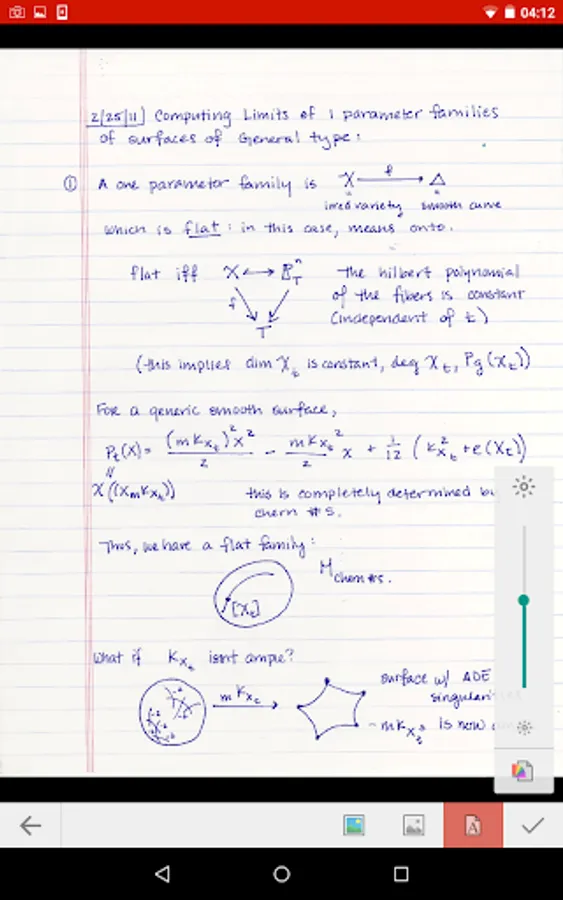 04:12
2/25/11] Computing Limits of 1 parameter families
of surfaces of General type:
① A one parameter family is X —f→ Δ
irred variety smooth curve
which is flat: in this case, means onto.
flat iff X ↔ P^n_T the hilbert polynomial
f of the fibers is constant
T (independent of t)
(this implies dim X_t is constant, deg X_t, Pg(X_t))
For a generic smooth surface,
P_t(x) = (m K_{X_t})^2 x^2 / 2 - m K_{X_t}^2 / 2 x + 1/12 (K_{X_t}^2 + e(X_t))
χ((x m K_{X_t})) this is completely determined
chern #s.
Thus, we have a flat family:
[X_t] M chern #s.
What if K_{X_t} isnt ample?
m K_{X_t} surface w/ ADE
-m K_{X_t} is now